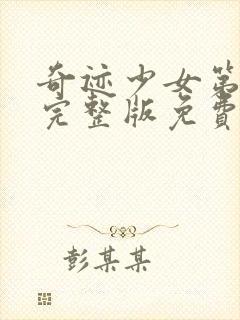 奇迹少女第
完整版免费
彭某某